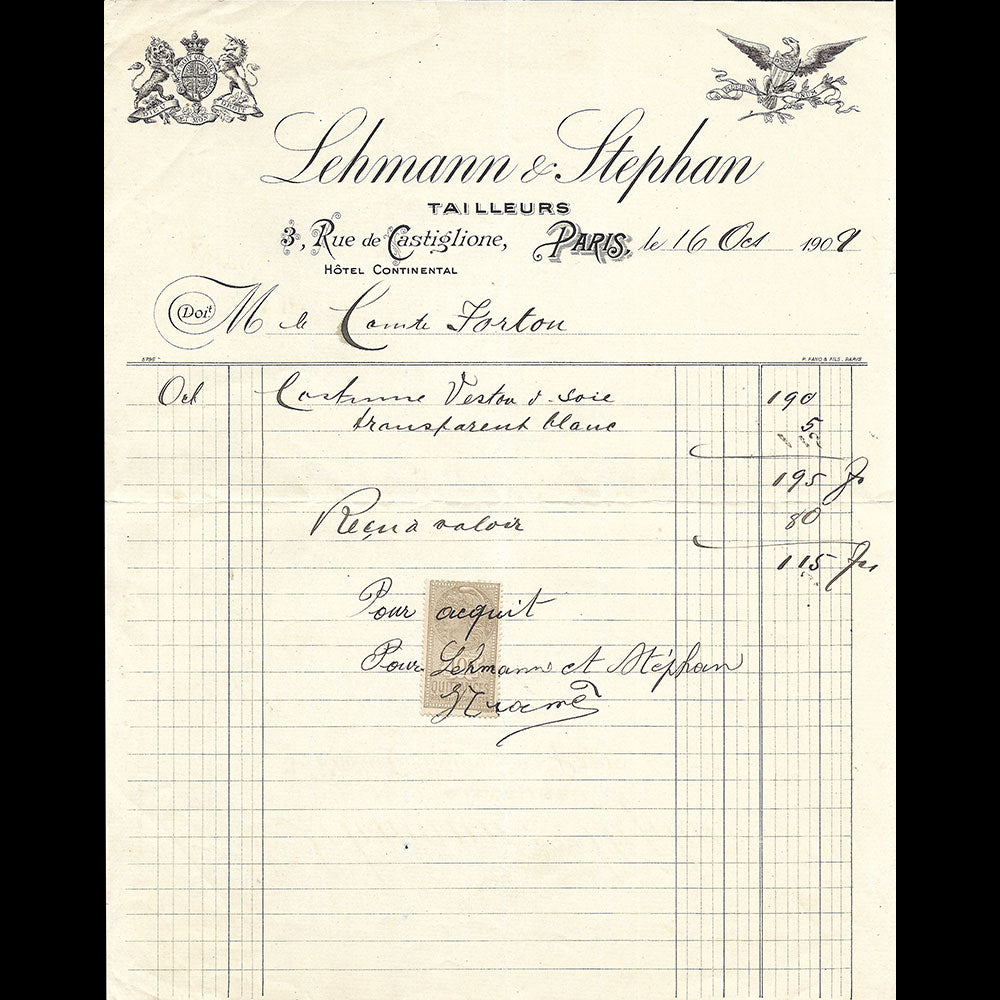 Lehmann & Stephan
TAILLEURS
3, Rue de Castiglione, PARIS, le 16 Oct 1909
HÔTEL CONTINENTAL
Doit M le Comte Forton
5796 P. FANO & FILS. PARIS
Oct Costume Veston d. soie 190
transparent blanc 5
195 Frs
Reçu à valoir 80
115 Frs
Pour acquit
Pour Lehmann et Stéphan
10c
QUITTANCES